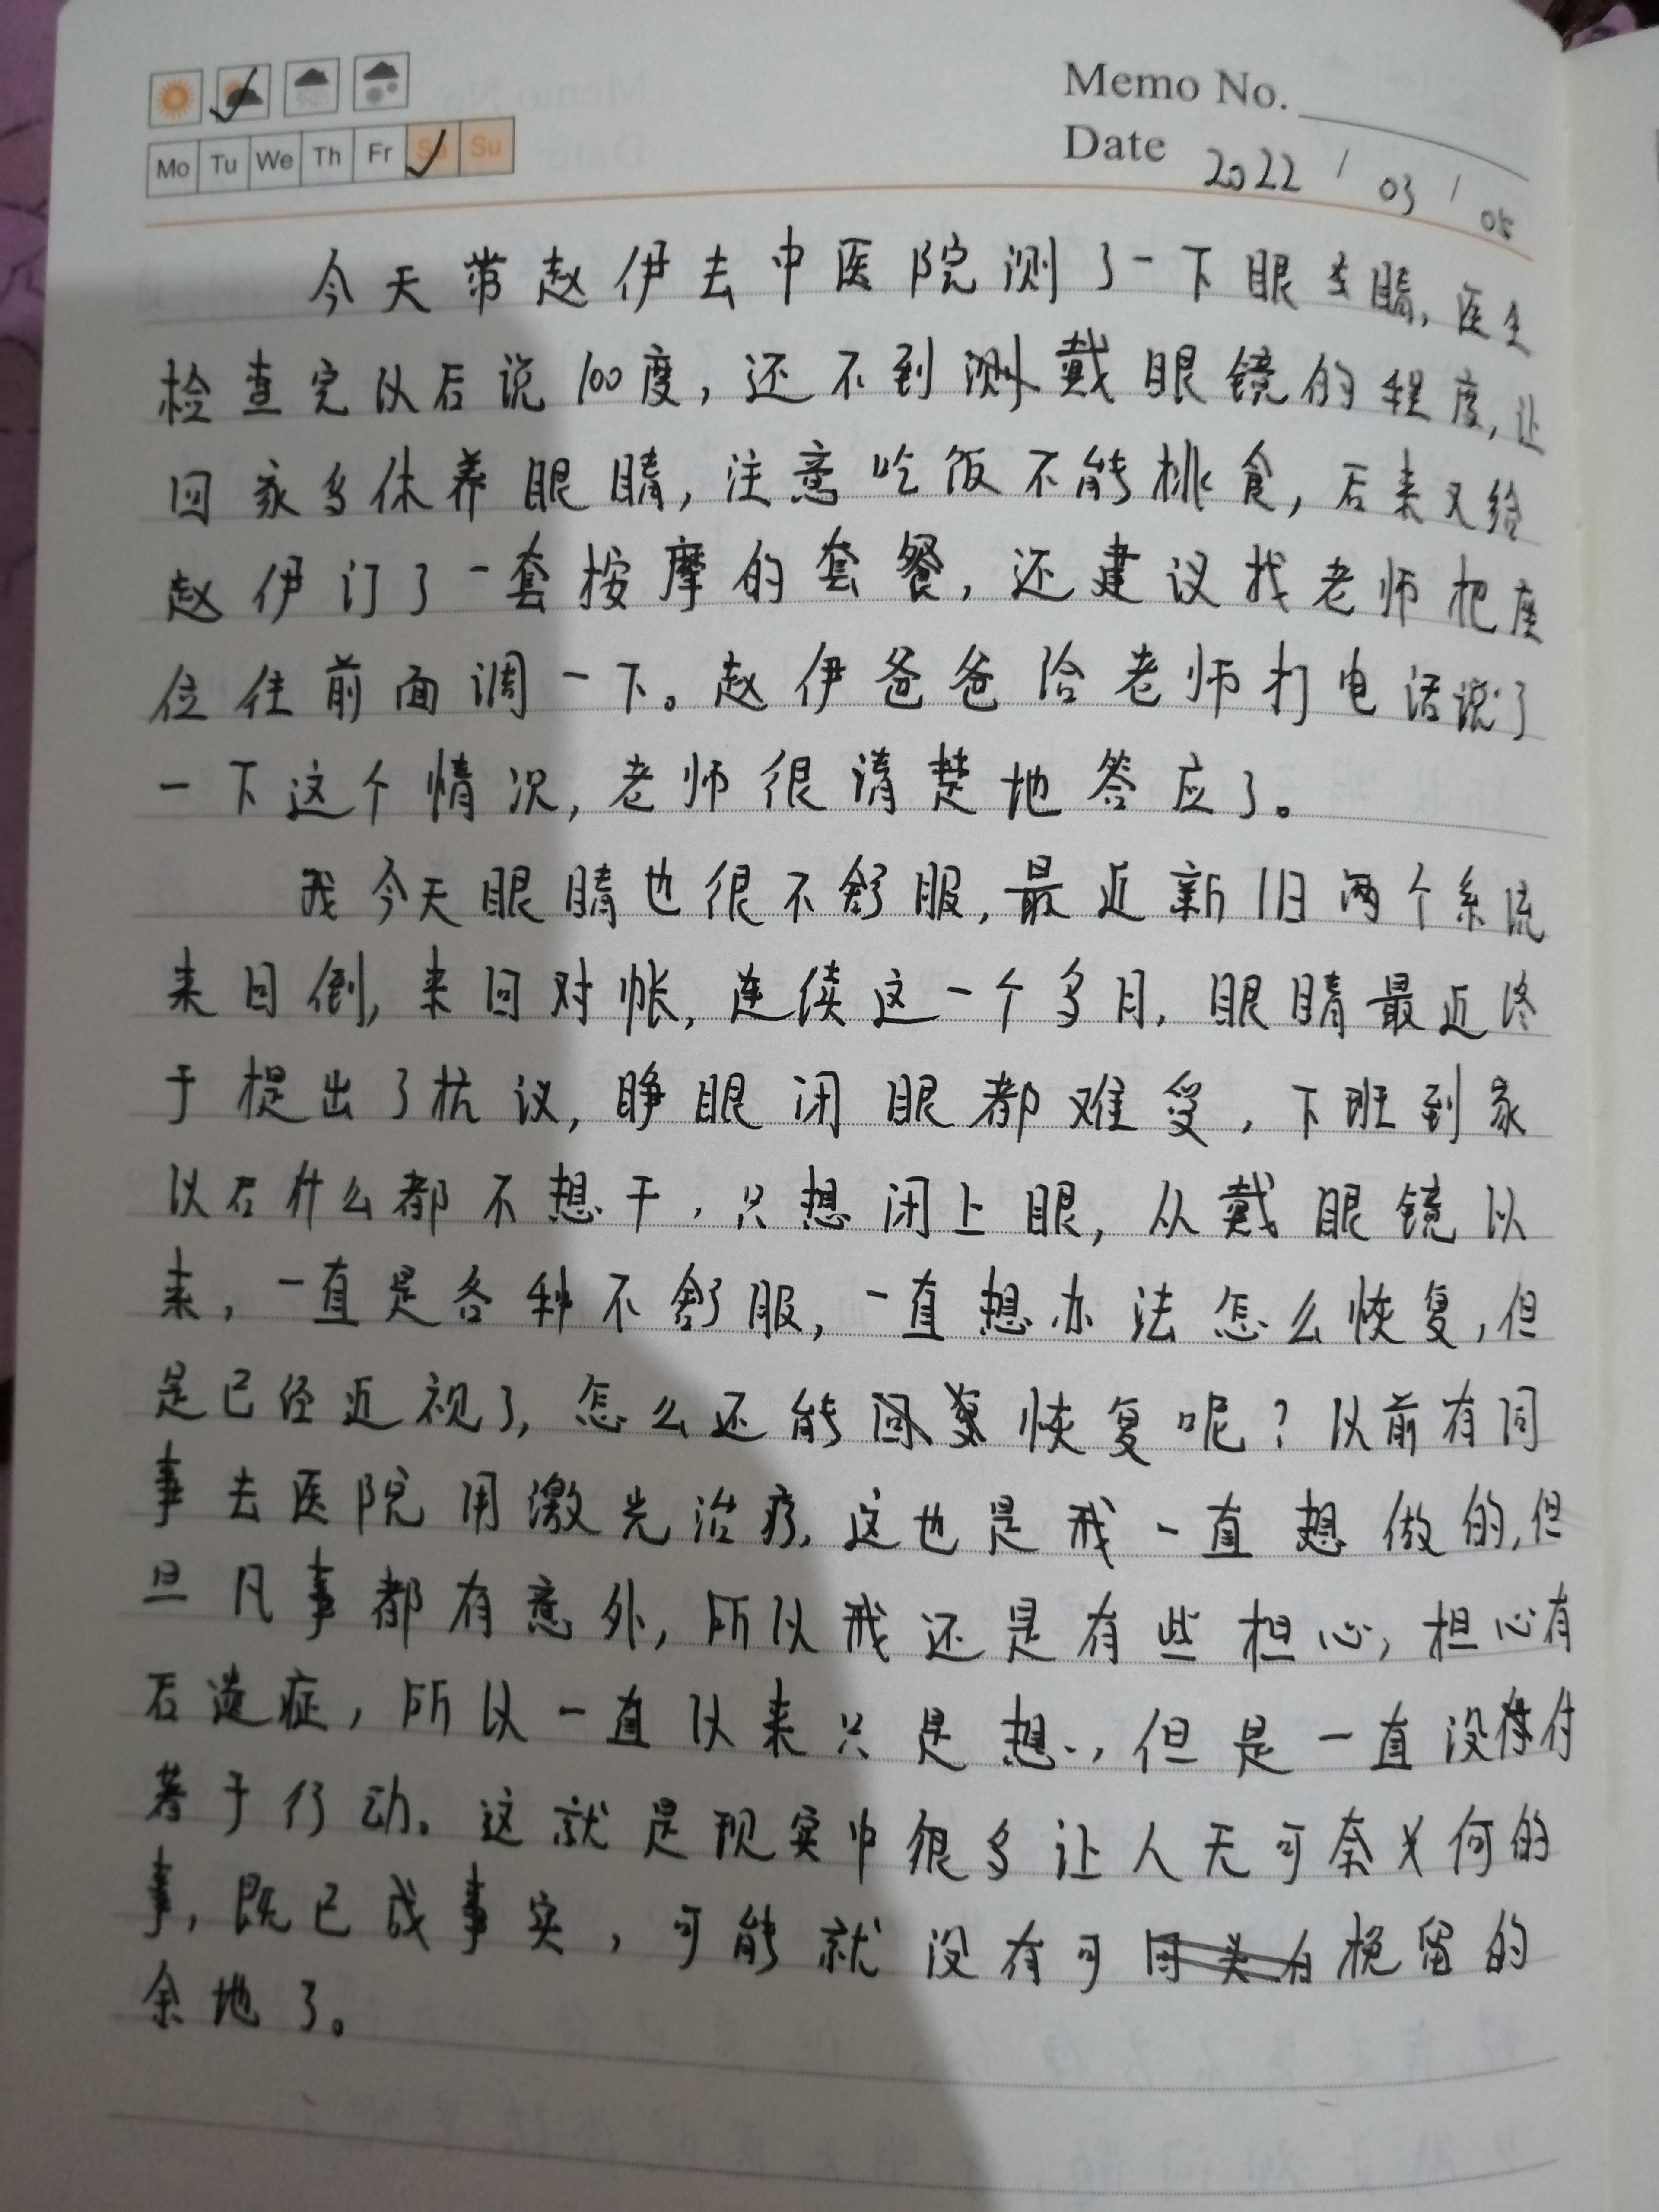 Memo No.
Mo Tu We Th Fr Sa Su
Date 2022 / 03 / 05
今天带赵伊去中医院测了一下眼睛,医生
检查完以后说100度,还不到戴眼镜的程度,让
回家多休养眼睛,注意吃饭不能挑食,后来又给
赵伊订了一套按摩的套餐,还建议找老师把座
位往前面调一下。赵伊爸爸给老师打电话说了
一下这个情况,老师很清楚地答应了。
我今天眼睛也很不舒服,最近新旧两个系统
来回倒,来回对帐,连续这一个多月,眼睛最近终
于提出了抗议,睁眼闭眼都难受,下班到家
以后什么都不想干,只想闭上眼,从戴眼镜以
来,一直是各种不舒服,一直想办法怎么恢复,但
是已经近视了,怎么还能恢复呢?以前有同
事去医院用激光治疗,这也是我一直想做的,但
旦凡事都有意外,所以我还是有些担心,担心有
后遗症,所以一直以来只是想,但是一直没付
著于行动。这就是现实中很多让人无可奈何的
事,既已成事实,可能就没有可挽留的
余地了。